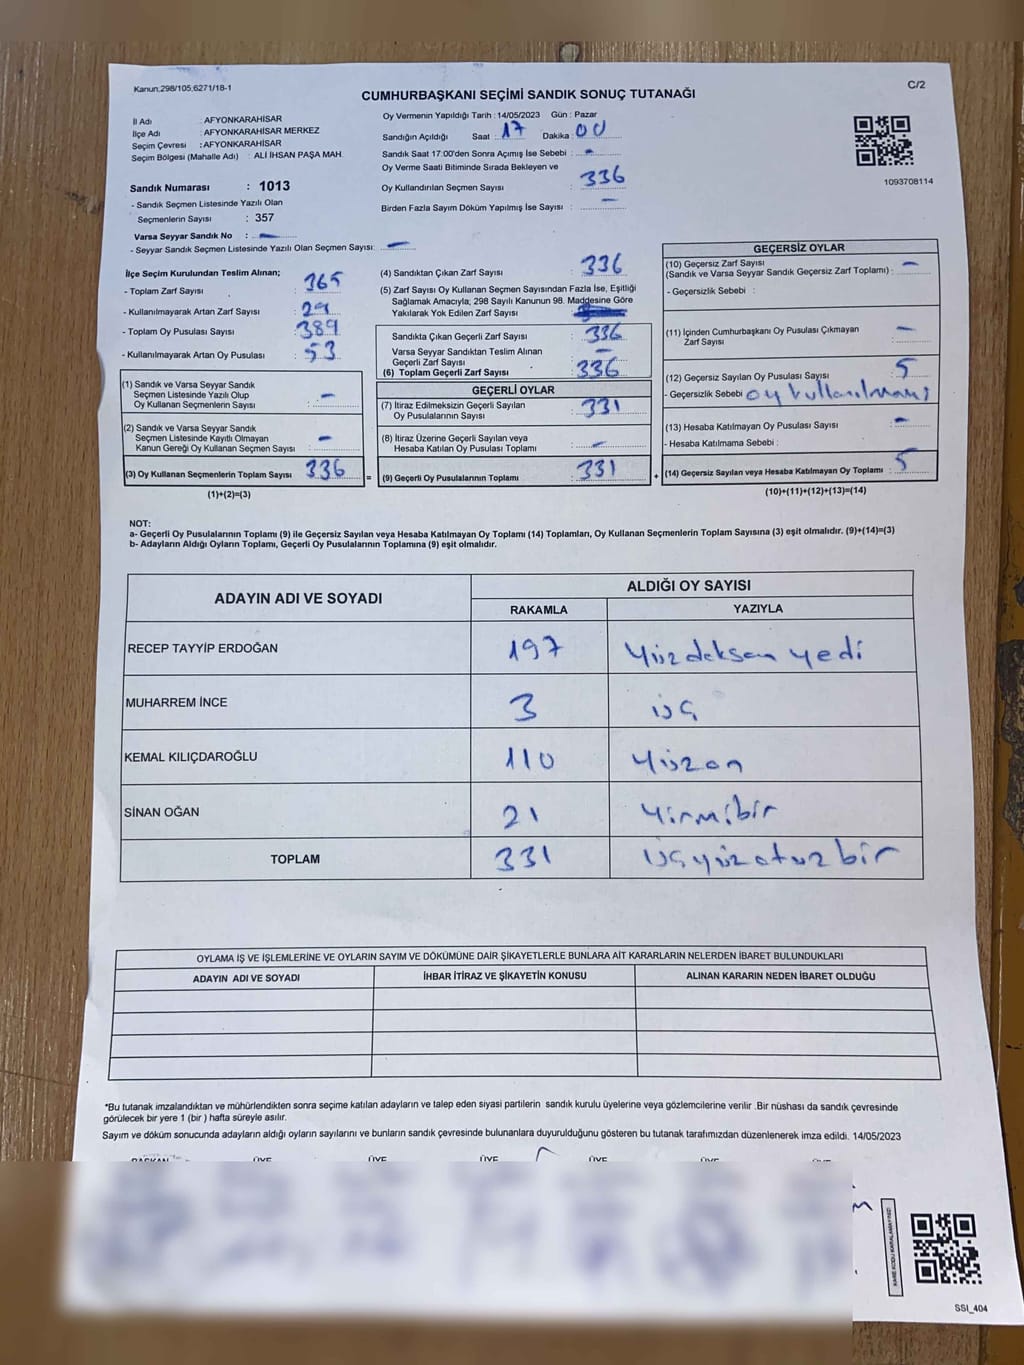 Kanun:298/105;6271/18-1
C/2
CUMHURBAŞKANI SEÇİMİ SANDIK SONUÇ TUTANAĞI
İl Adı : AFYONKARAHİSAR
İlçe Adı : AFYONKARAHİSAR MERKEZ
Seçim Çevresi : AFYONKARAHİSAR
Seçim Bölgesi (Mahalle Adı) : ALİ İHSAN PAŞA MAH.
Sandık Numarası : 1013
- Sandık Seçmen Listesinde Yazılı Olan
Seçmenlerin Sayısı : 357
Varsa Seyyar Sandık No : -
- Seyyar Sandık Seçmen Listesinde Yazılı Olan Seçmen Sayısı: -
Oy Vermenin Yapıldığı Tarih : 14/05/2023 Gün : Pazar
Sandığın Açıldığı Saat : 17 Dakika : 00
Sandık Saat 17:00'den Sonra Açımış İse Sebebi : -
Oy Verme Saati Bitiminde Sırada Bekleyen ve
Oy Kullandırılan Seçmen Sayısı : 336
Birden Fazla Sayım Döküm Yapılmış İse Sayısı : -
1093708114
İlçe Seçim Kurulundan Teslim Alınan;
- Toplam Zarf Sayısı : 365
- Kullanılmayarak Artan Zarf Sayısı : 29
- Toplam Oy Pusulası Sayısı : 389
- Kullanılmayarak Artan Oy Pusulası : 53
(1) Sandık ve Varsa Seyyar Sandık
Seçmen Listesinde Yazılı Olup
Oy Kullanan Seçmenlerin Sayısı : -
(2) Sandık ve Varsa Seyyar Sandık
Seçmen Listesinde Kayıtlı Olmayan
Kanun Gereği Oy Kullanan Seçmen Sayısı : -
(3) Oy Kullanan Seçmenlerin Toplam Sayısı : 336
(1)+(2)=(3)
(4) Sandıktan Çıkan Zarf Sayısı : 336
(5) Zarf Sayısı Oy Kullanan Seçmen Sayısından Fazla İse, Eşitliği
Sağlamak Amacıyla; 298 Sayılı Kanunun 98. Maddesine Göre
Yakılarak Yok Edilen Zarf Sayısı
Sandıkta Çıkan Geçerli Zarf Sayısı : 336
Varsa Seyyar Sandıktan Teslim Alınan
Geçerli Zarf Sayısı : -
(6) Toplam Geçerli Zarf Sayısı : 336
GEÇERLİ OYLAR
(7) İtiraz Edilmeksizin Geçerli Sayılan
Oy Pusulalarının Sayısı : 331
(8) İtiraz Üzerine Geçerli Sayılan veya
Hesaba Katılan Oy Pusulası Toplamı : -
= (9) Geçerli Oy Pusulalarının Toplamı : 331 +
GEÇERSİZ OYLAR
(10) Geçersiz Zarf Sayısı
(Sandık ve Varsa Seyyar Sandık Geçersiz Zarf Toplamı) : -
- Geçersizlik Sebebi :
(11) İçinden Cumhurbaşkanı Oy Pusulası Çıkmayan
Zarf Sayısı : -
(12) Geçersiz Sayılan Oy Pusulası Sayısı : 5
- Geçersizlik Sebebi : oy kullanılmamış
(13) Hesaba Katılmayan Oy Pusulası Sayısı : -
- Hesaba Katılmama Sebebi :
(14) Geçersiz Sayılan veya Hesaba Katılmayan Oy Toplamı : 5
(10)+(11)+(12)+(13)=(14)
NOT:
a- Geçerli Oy Pusulalarının Toplamı (9) ile Geçersiz Sayılan veya Hesaba Katılmayan Oy Toplamı (14) Toplamları, Oy Kullanan Seçmenlerin Toplam Sayısına (3) eşit olmalıdır. (9)+(14)=(3)
b- Adayların Aldığı Oyların Toplamı, Geçerli Oy Pusulalarının Toplamına (9) eşit olmalıdır.
ADAYIN ADI VE SOYADI
ALDIĞI OY SAYISI
RAKAMLA YAZIYLA
RECEP TAYYİP ERDOĞAN 197 Yüzdoksan yedi
MUHARREM İNCE 3 üç
KEMAL KILIÇDAROĞLU 110 Yüzon
SİNAN OĞAN 21 Yirmibir
TOPLAM 331 üçyüzotuzbir
OYLAMA İŞ VE İŞLEMLERİNE VE OYLARIN SAYIM VE DÖKÜMÜNE DAİR ŞİKAYETLERLE BUNLARA AİT KARARLARIN NELERDEN İBARET BULUNDUKLARI
ADAYIN ADI VE SOYADI İHBAR İTİRAZ VE ŞİKAYETİN KONUSU ALINAN KARARIN NEDEN İBARET OLDUĞU
*Bu tutanak imzalandıktan ve mühürlendikten sonra seçime katılan adayların ve talep eden siyasi partilerin sandık kurulu üyelerine veya gözlemcilerine verilir .Bir nüshası da sandık çevresinde
görülecek bir yere 1 (bir ) hafta süreyle asılır.
Sayım ve döküm sonucunda adayların aldığı oyların sayılarını ve bunların sandık çevresinde bulunanlara duyurulduğunu gösteren bu tutanak tarafımızdan düzenlenerek imza edildi. 14/05/2023
BAŞKAN ÜYE ÜYE ÜYE ÜYE ÜYE ÜYE
KARE KODU KARALAMAYINIZ!
SSI_404